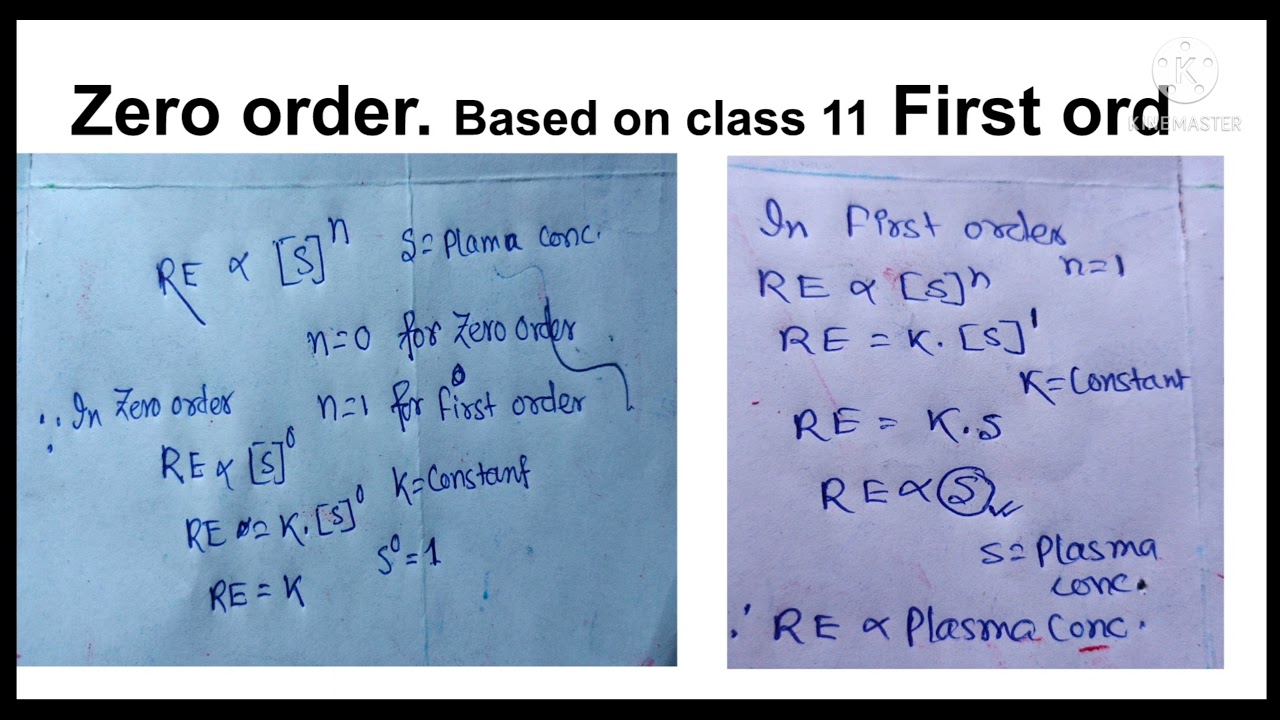 Zero order. Based on class 11 First ord
KINEMASTER
RE ∝ [S]^n S = Plama conc.
n=0 for Zero order
n=1 for first order
∴ In Zero order
RE ∝ [S]^0
K=Constant
RE = K.[S]^0
S^0 = 1
RE = K
In First order
n=1
RE ∝ [S]^n
RE = K.[S]^1
K=Constant
RE = K.S
RE ∝ S
S = Plasma
conc.
∴ RE ∝ Plasma Conc.